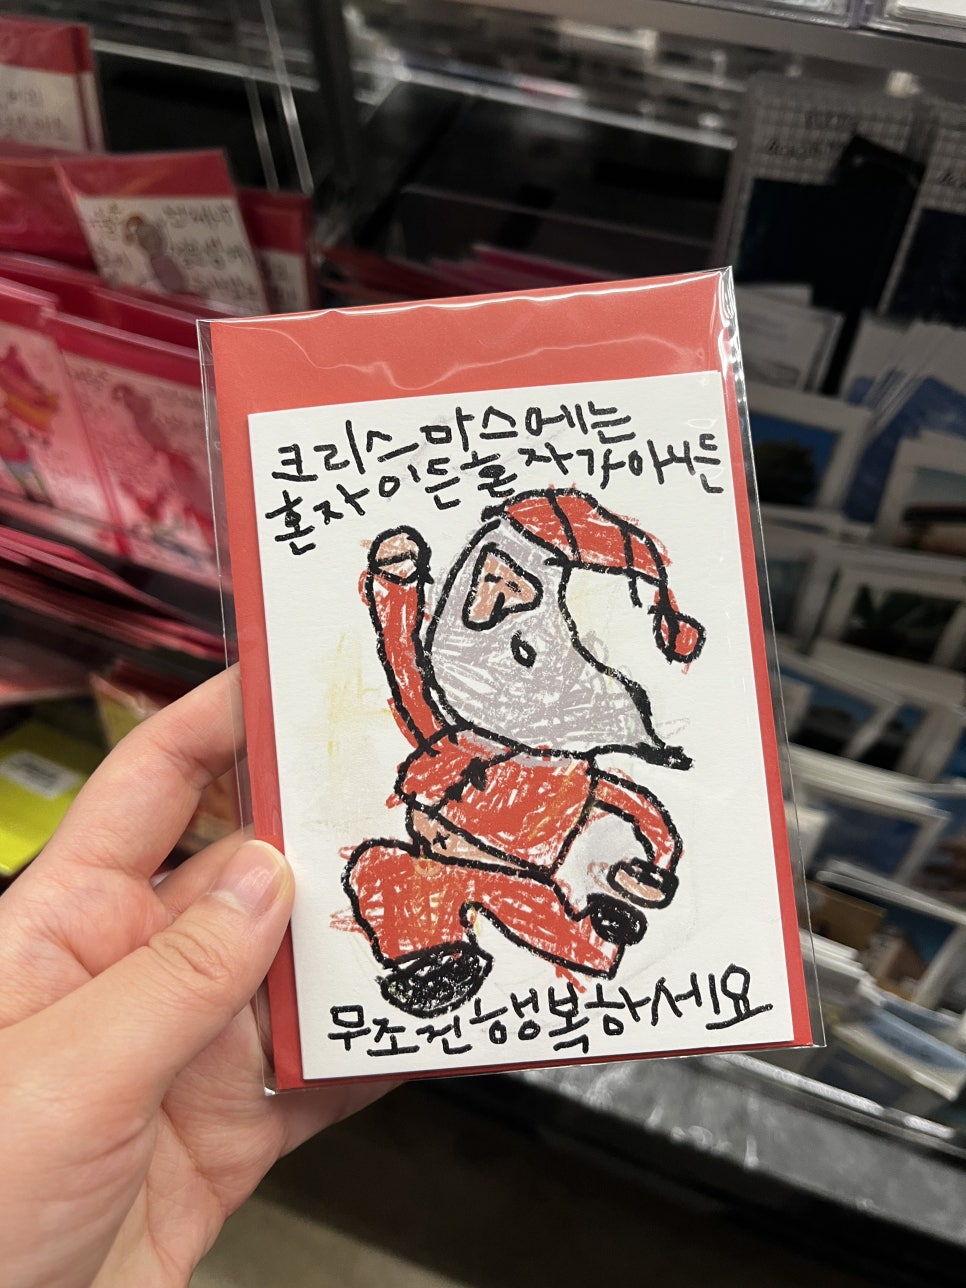 크리스마스에는
혼자이든 혼자가 아니든
무조건 행복하세요